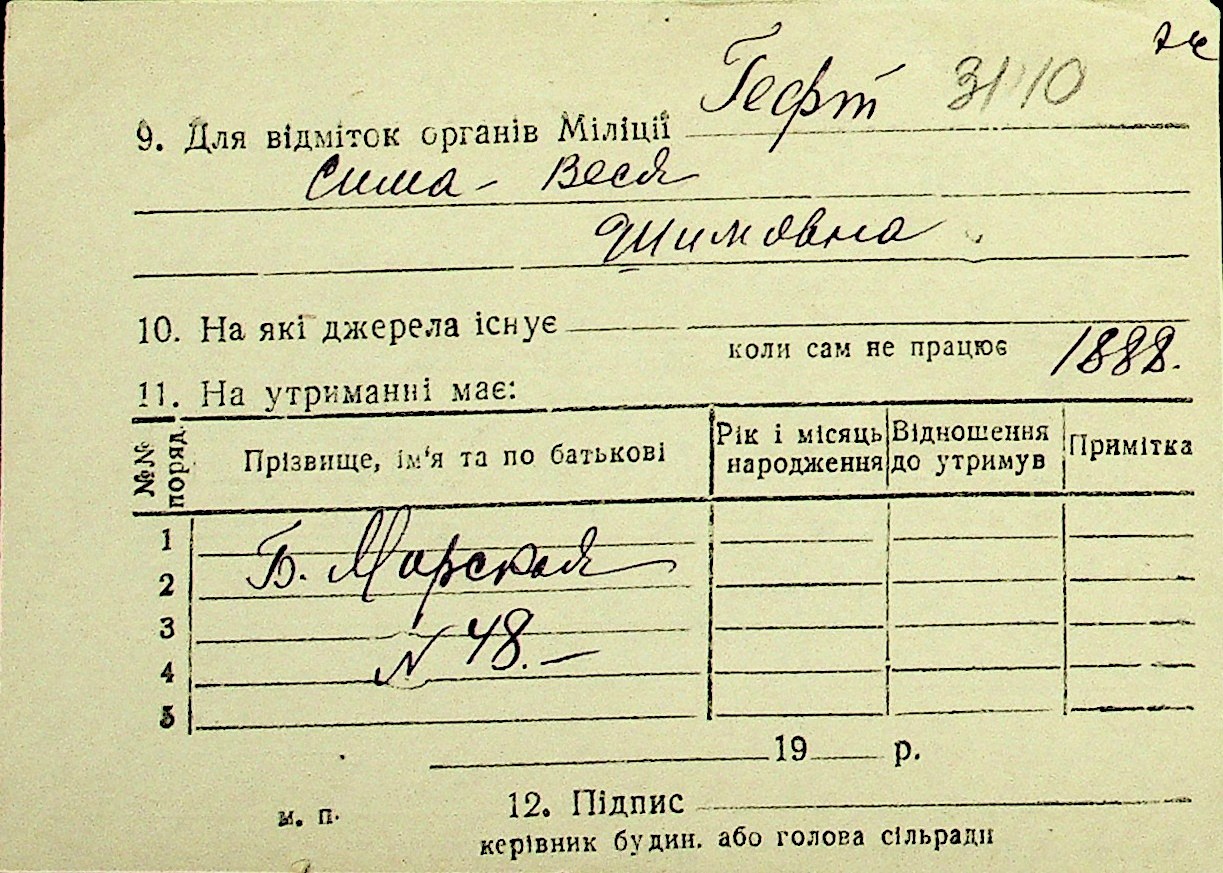 Гефт 31/10
9. Для відміток органів Міліції
Сима - Веся
Шимовна
10. На які джерела існує
коли сам не працює 1888.
11. На утриманні має:
№№ поряд. Прізвище, ім'я та по батькові Рік і місяць народження Відношення до утримув Примітка
1
Б. Морская
2
3
N 48. —
4
5
19 р.
м. п. 12. Підпис
керівник будин. або голова сільради